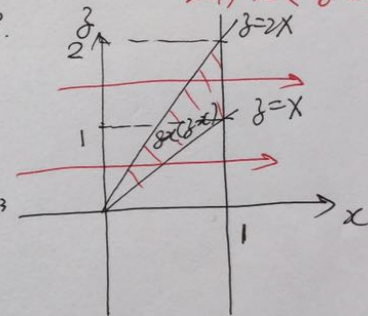 z
z=2x
2
z=x
1
8x(z-x)
x
1